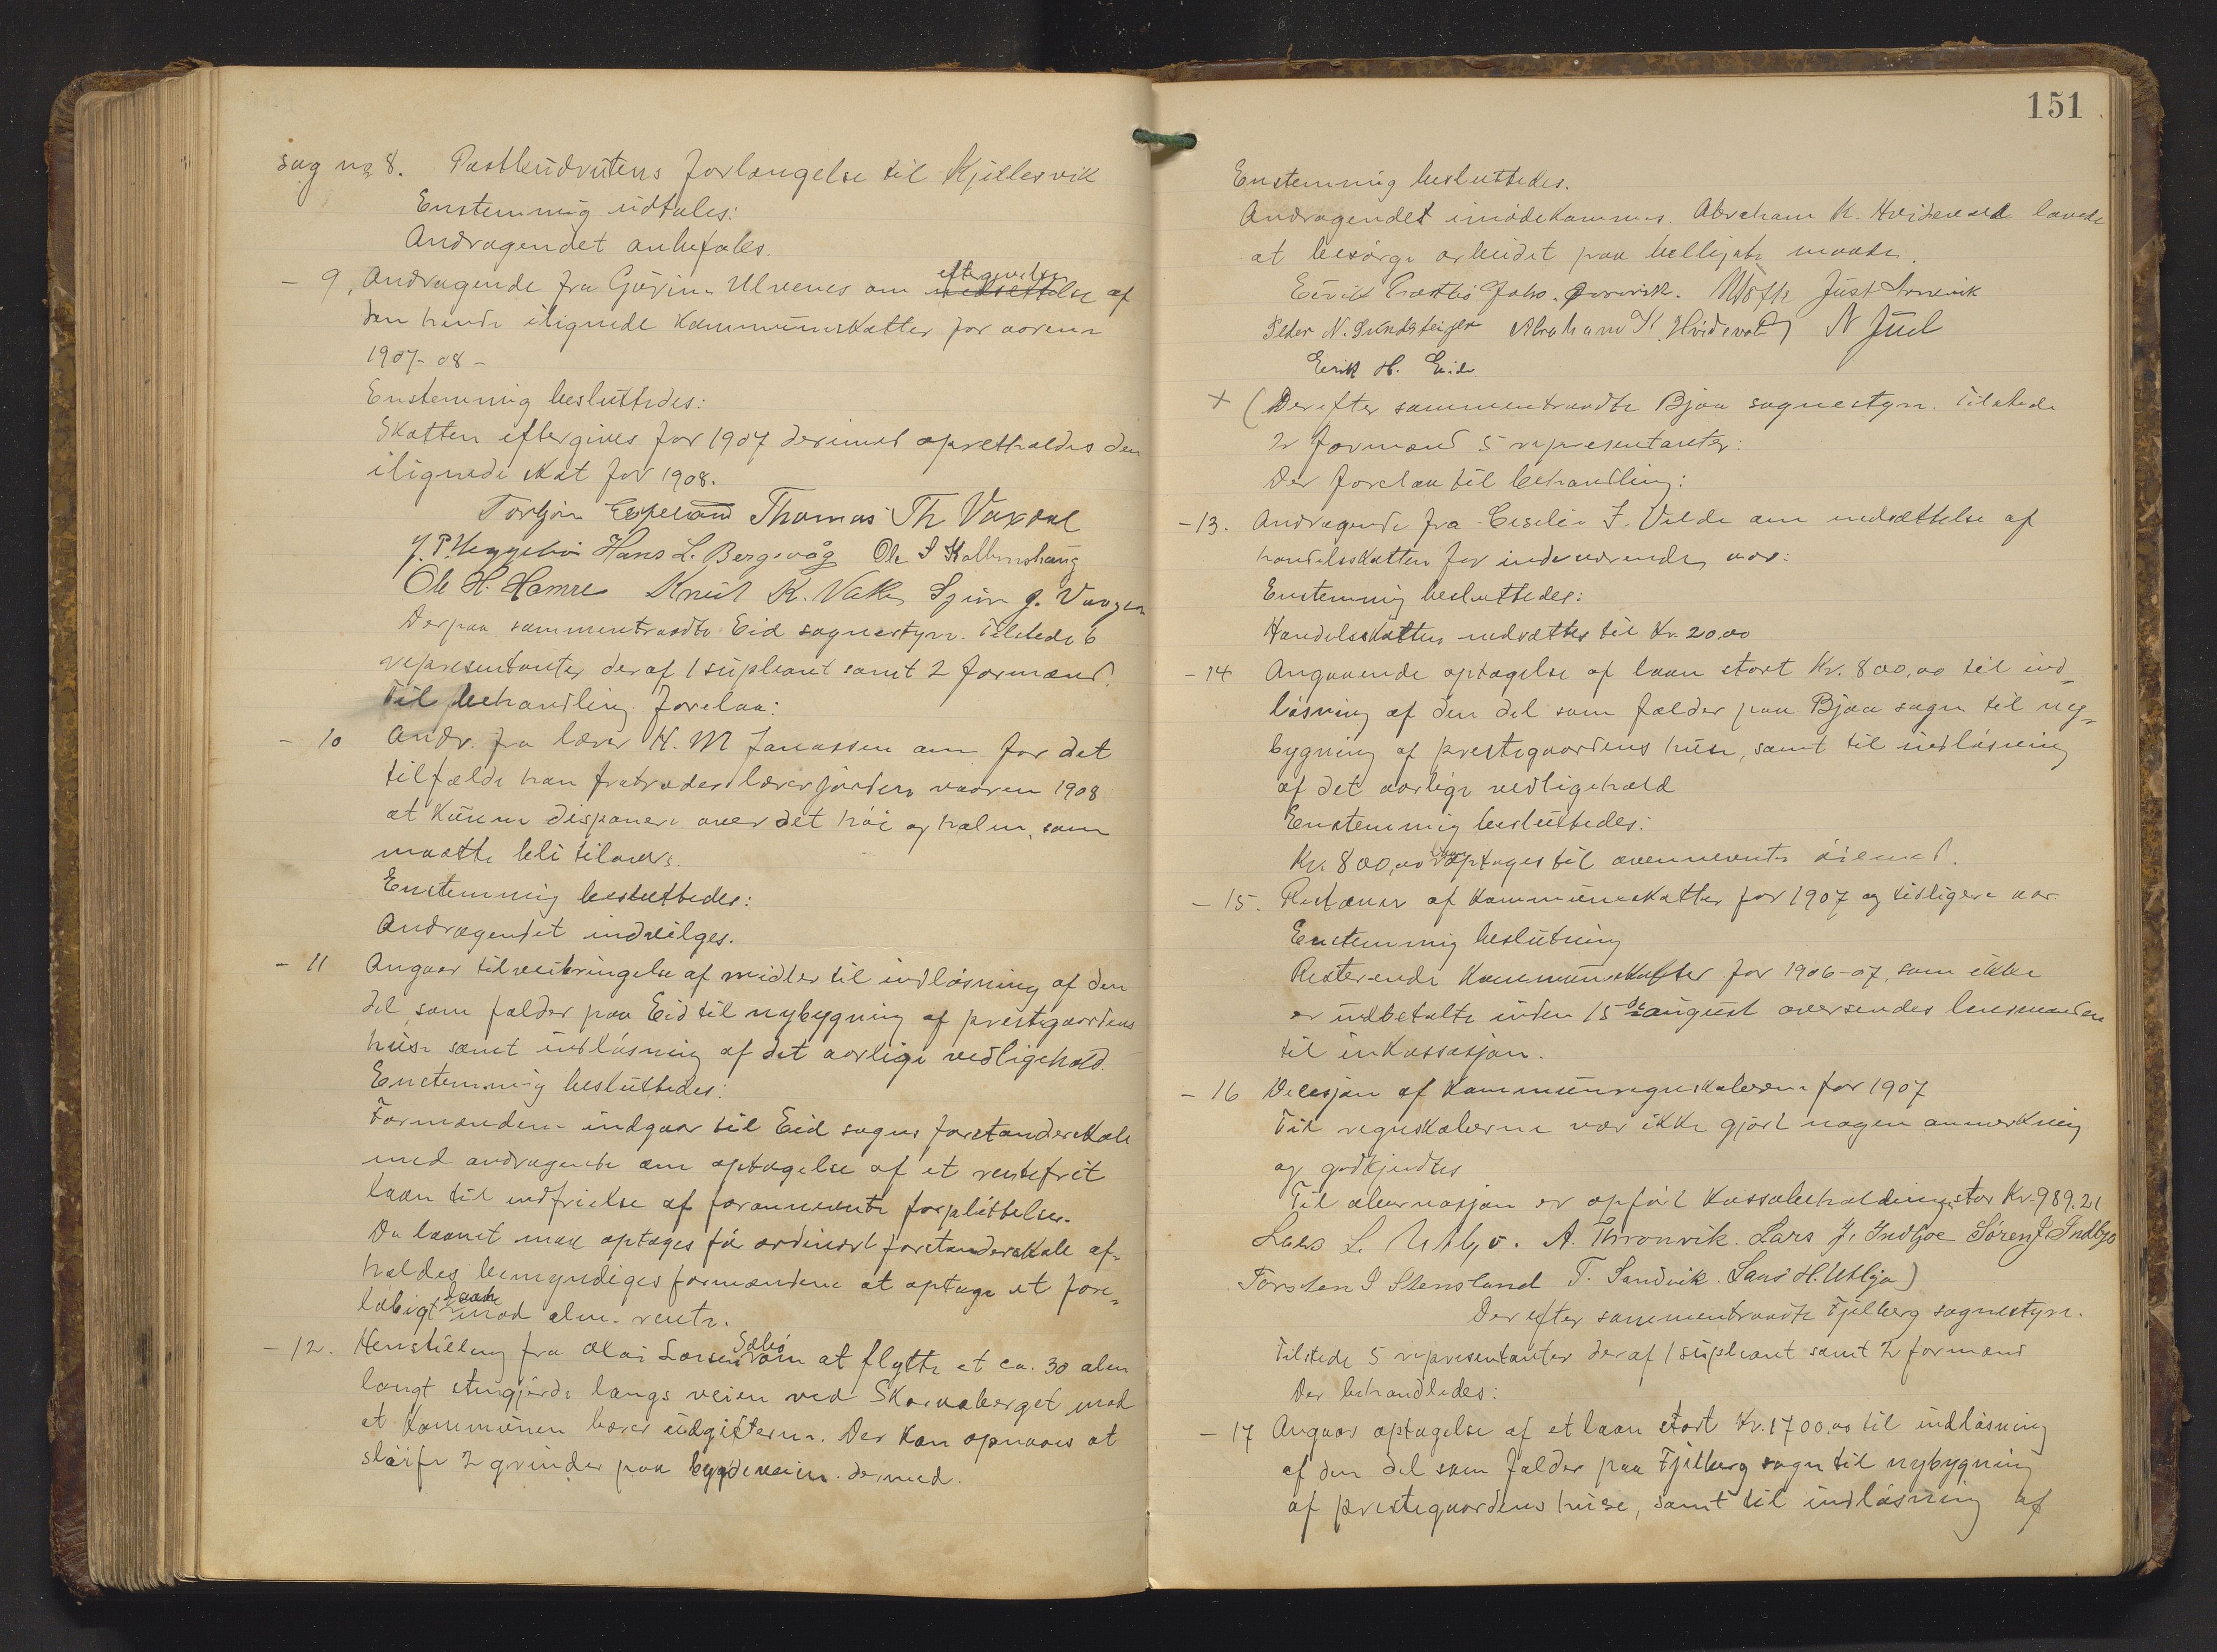 sag no 8. Postbudrutens forlængelse til Kjillesvik
Enstemmig udtales:
Andragendet anbefales.
- 9, Andragende fra Gurine Ulvenes om eftergivelse nedsættelse af
den hende ilignede kommuneskatter for aarene
1907-08-
Enstemmig besluttedes:
Skatten eftergives for 1907 derimod opretholdes den
ilignede skat for 1908.
Torbjørn Espeland Thomas Th Vaxdal
Hans L. Bergsvåg Ole
Ole H. Hamre Knut K. Vaka
Derpaa sammentraadte Eid sognestyre. Tilstede 6
representanter deraf 1 supleant samt 2 formænd.
Til behandling forelaa:
- 10 Andr. fra lærer H. M Janassen om for det
tilfælde han fratræder lærerjorden vaaren 1908
at kunne disponere over det høi og halm, som
maatte bli tilovers.
Enstemmig besluttedes:
Andragendet indvilges.
- 11 Angaar tilveibringelse af midler til indløsning af den
del som falder paa Eid til nybygning af prestegaardens
huse samt indløsning af det aarlige vedligehold.
Enstemmig besluttedes:
Formændene indgaar til Eid sogns forstanderskab
med andragende om optagelse af et rentefrit
laan til indfrielse af forannævnte forpligtelser.
Da laanet maa optages før ordinært forstanderskab af-
holdes bemyndiges formændene at optage et fore-
løbigt laan mod alm. rente.
- 12. Henstilling fra Olai Larsen Sæbø om at flytte et ca. 30 alen
langt stengjerde langs veien ved Skarvaberget mod
at kommunen bærer udgifterne. Der kan opnaaes at
sløife 2 grinder paa bygdeveien dermed.
151
Enstemmig besluttedes.
Andragendet imødekommes. Abraham K. Hvidevold lovede
at besørge arbeidet paa belligste maade.
Just Arnevik
Peter N. Sundsteigen Abraham K. Hvidevold N Juel
Eirik H. Eide
+ (Derefter sammentraadte Bjoa sognestyre. Tilstede
2 formænd 5 representanter:
Der forelaa til behandling:
- 13. Andragende fra J. Velde om nedsættelse af
handelsskatten for indeværende aar:
Enstemmig besluttedes:
Handelsskatten nedsættes til Kr. 20,00
- 14 Angaaende optagelse af laan stort Kr. 800,00 til ind-
løsning af den del som falder paa Bjoa sogn til ny-
bygning af prestegaardens huse, samt til indløsning
af det aarlige vedligehold
Enstemmig besluttedes:
Kr. 800,00 laan optages til ovennevnte øiemed.
- 15. Restancer af kommuneskatter for 1907 og tidligere aar.
Enstemmig beslutning
Resterende kommuneskatter for 1906-07, som ikke
er indbetalte inden 15de august oversendes lensmanden
til inkassasjon.
- 16 Decisjon af kommuneregnskaberne for 1907
Til regnskaberne var ikke gjort nogen anmerkning
og godkjendtes
Til observasjon er opført kassabeholdning stor Kr. 989.21
Lars L. Utbjo. A. Thronvik. Lars J. Indbjoe Søren J. Indbjo
Torsten I Stensland T. Sandvik. Lars H. Utbjo)
Derefter sammentraadte Fjelberg sognestyre.
Tilstede 5 representanter deraf 1 supleant samt 2 formænd
Der behandledes:
- 17 Angaar optagelse af et laan stort Kr. 1700.00 til indløsning
af den del som falder paa Fjelberg sogn til nybygning
af prestegaardens huse, samt til indløsning af